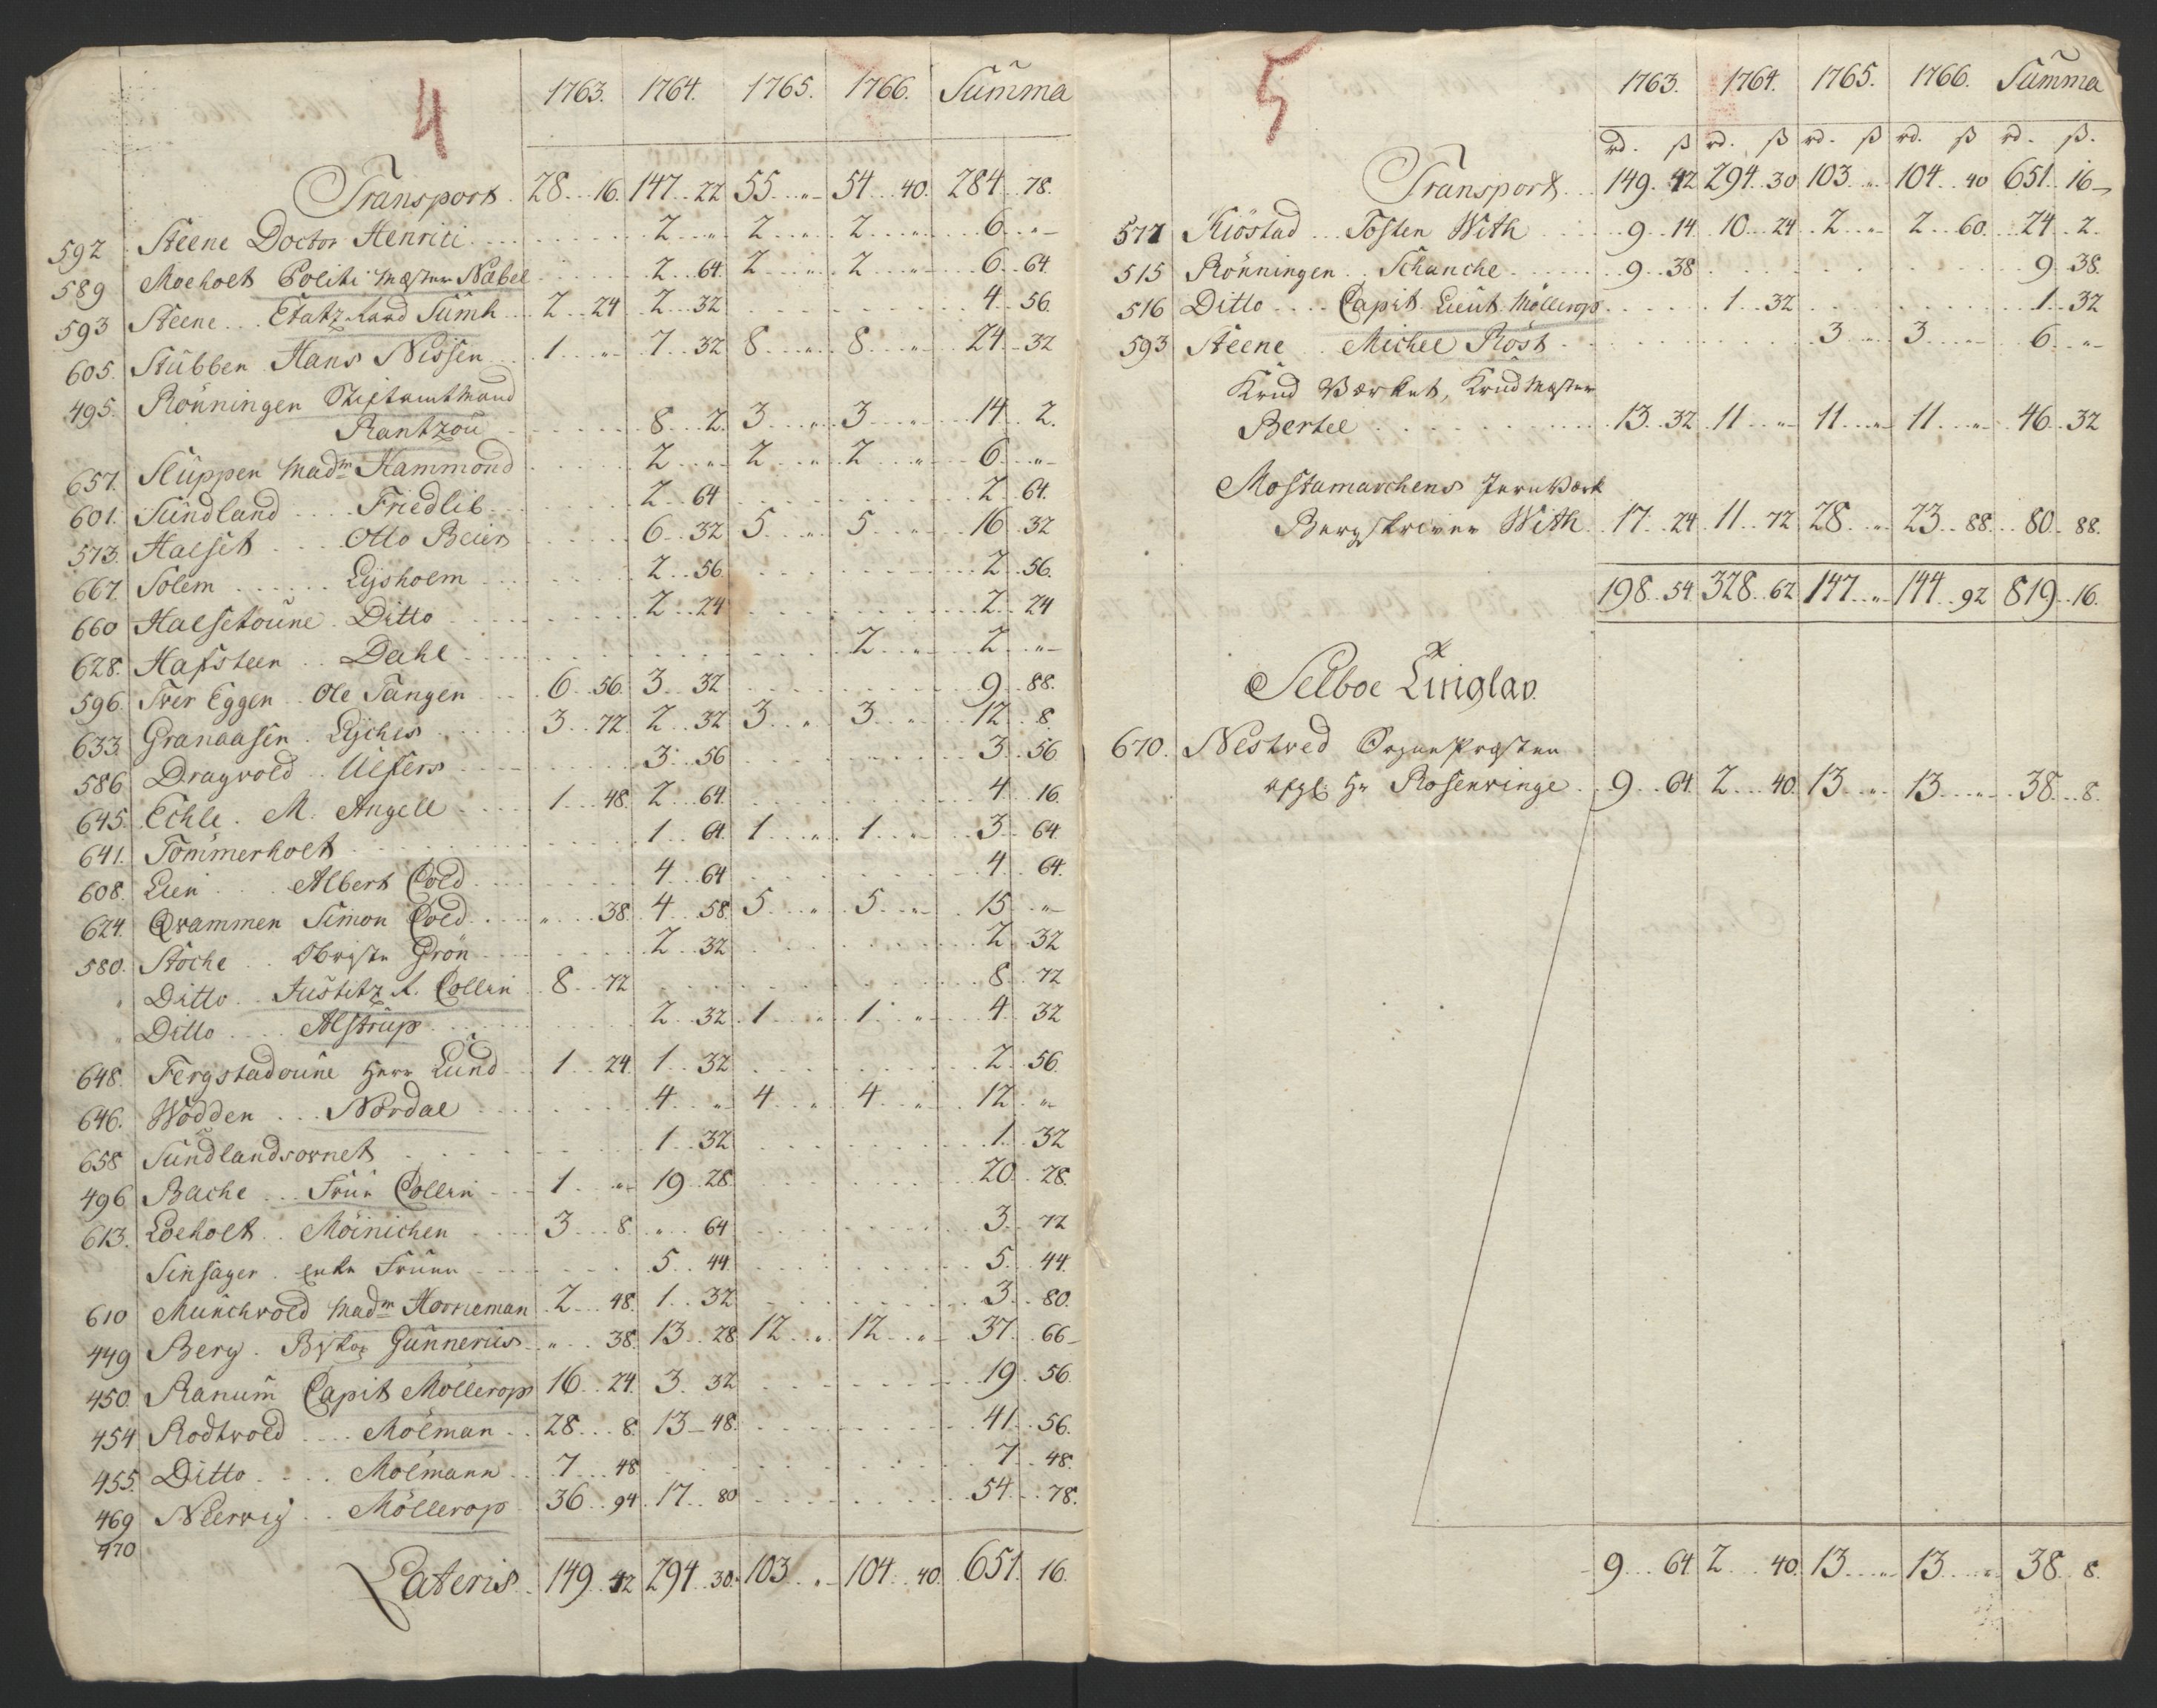 4
1763. 1764. 1765. 1766. Summa
Transport. 28 .. 16. 147 .. 22 55 .. " 54 .. 40. 284 .. 78.
592 Steene Doctor Henrici 2 .. " 2 .. " 2 .. " 6 .. "
589 Moeholt Politi Mæster Næbel 2 .. 64. 2 .. " 2 .. " 6 .. 64
593 Steene Etatz Raad Sumh 2 .. 24 2 .. 32 4 .. 56
605. Stubben Hans Nissen 1 .. " 7 .. 32 8 .. " 8 .. " 24 .. 32
495. Rönningen Stiftamtmand
Rantzou 8 .. 2. 3 .. " 3 .. " 14 .. 2.
657. Sluppen Madm Hammond 2 .. " 2 .. " 2 .. " 6 .. "
601. Sundland Friedlib 2 .. 64 2 .. 64.
573. Halset Otto Beier 6 .. 32 5 .. " 5 .. " 16 .. 32
667. Solem Lysholm 2 .. 56. 2 .. 56.
660 Halsetoune Ditto 2 .. 24 2 .. 24
628. Hafsteen Dahl 2 .. " 2 .. "
596. Tver Eggen Ole Tangen 6 .. 56. 3 .. 32 9 .. 88.
633 Granaasen Lyches 3 .. 72. 2 .. 32 3 .. " 3 .. " 12 .. 8
586 Dragvold Ulfers 3 .. 56 3 .. 56
645. Echle. M. Angell 1 .. 48. 2 .. 64. 4 .. 16.
641. Tömmerholt 1 .. 64. 1 .. " 1 .. " 3 .. 64.
608. Lien Albert Cold 4 .. 64 4 .. 64.
624. Qvammen Simon Cold " .. 38. 4 .. 58. 5 .. " 5 .. " 15 .. "
580. Stoche Obriste Grön 2 .. 32 2 .. 32
" Ditto Justitz R. Collin 8 .. 72 8 .. 72
" Ditto Alstrup 2 .. 32. 1 .. " 1 .. " 4 .. 32
648. Fergstadoune Herr Lund 1 .. 24. 1 .. 32 2 .. 56
646. Wodden Nordal 4 .. " 4 .. " 4 .. " 12 .. "
658 Sundlandsovnet 1 .. 32 1 .. 32
496 Bache Frue Collin 1 .. " 19 .. 28. 20 .. 28.
613. Loeholt Möinichen 3 .. 8. " .. 64 3 .. 72
Sinsager. Enke Fruen 5 .. 44. 5 .. 44.
610 Munchvold Madm Horneman 2 .. 48. 1 .. 32 3 .. 80.
449 Berg. Biskop Gunnerus " .. 38. 13 .. 28 12 .. " 12 .. " 37 .. 66
450. Ranum Capit Möllerop 16 .. 24. 3 .. 32 19 .. 56.
454 Rodtvold Mölman 28 .. 8. 13 .. 48. 41 .. 56.
455. Ditto Mölmann 7 .. 48 7 .. 48.
469 Neervig Möllerop 36 .. 94. 17 .. 80 54 .. 78.
470
Lateris 149 .. 42 294 .. 30. 103 .. " 104 .. 40. 651. 16.
5
1763. 1764. 1765. 1766. Summa
rd. ß rd. ß rd. ß rd. ß rd. ß.
Transport 149 .. 42 294 .. 30 103 .. " 104 .. 40 651 .. 16
577 Kiöstad Tosten With 9 .. 14. 10 .. 24 2 .. " 2 .. 60. 24 .. 2.
515 Rönningen Schanche 9 .. 38 9 .. 38.
516 Ditto Capit. Lieut. Möllerop 1 .. 32 1 .. 32
593 Steene Michel Röst 3 .. " 3 .. " 6 .. "
Krud Værket, Krudmæster
Bertel 13 .. 32 11 .. " 11 .. " 11 .. " 46 .. 32
Mostamarchens Jernverk
Bergskriver With 17 .. 24 11 .. 72 28 .. " 23 .. 88. 80 .. 88.
198 .. 54 328 .. 62 147 .. " 144 .. 92 819 .. 16.
Selboe Tinglav.
670. Nestved
Hr Rosenvinge 9 .. 64. 2 .. 40. 13 .. " 13 .. " 38 .. 8.
9 .. 64 2 .. 40. 13 .. " 13 .. " 38 .. 8.